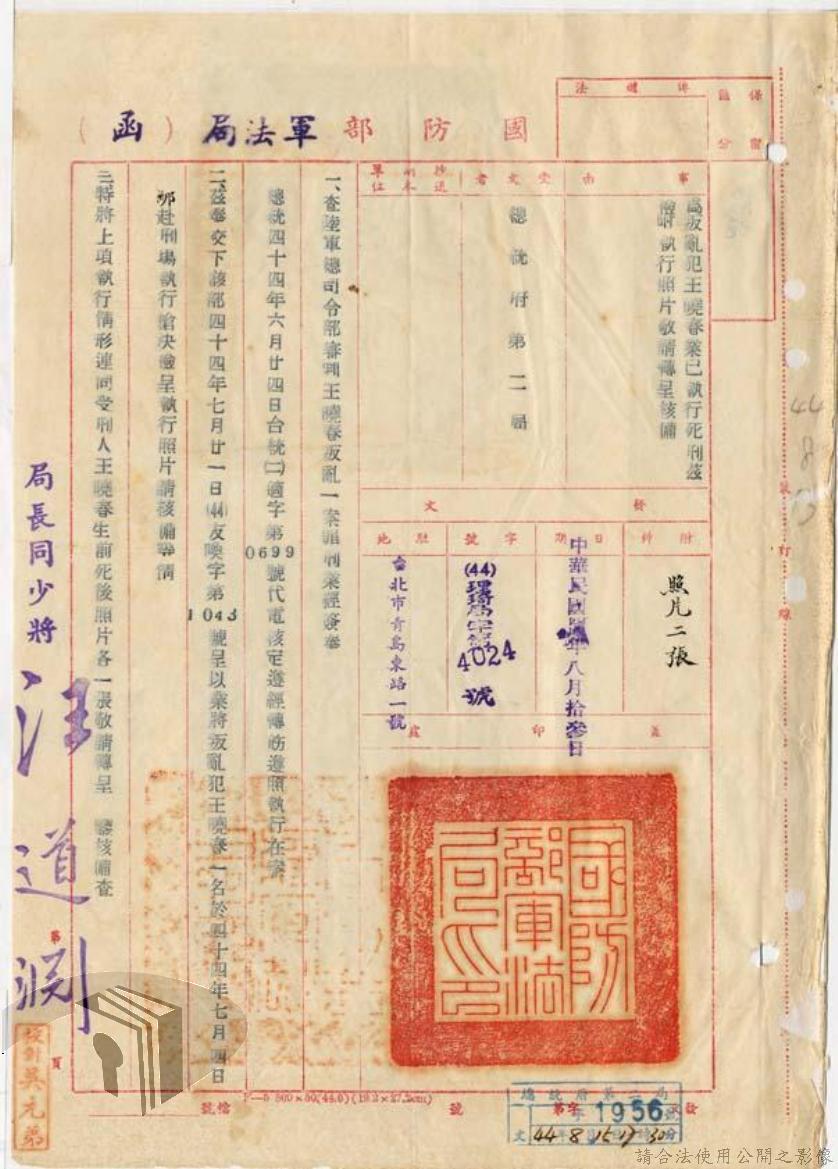 國防部軍法局（函）
保區
密分
法
事由
受文者
抄送副本單位
為叛亂犯王曉春業已執行死刑茲
檢附執行照片敬請轉呈核備
總統府第二局
文
附件
日期
字號
駐地
照片二張
中華民國
年八月拾參日
(44)
4024
號
台北市青島東路一號
蓋印處
國防部軍法局印
一、查陸軍總司令部審判王曉春叛亂一案罪刑業經簽奉
總統四十四年六月廿四日台統(二)適字第0699號代電核定遵經轉飭遵照執行在案
二、茲奉交下該部四十四年七月廿一日(44)友喚字第1043號呈以業將叛亂犯王曉春一名於四十四年七月四日
綁赴刑場執行槍決檢呈執行照片請核備等情
三、特將上項執行情形連同受刑人王曉春生前死後照片各一張敬請轉呈 鑒核備查
局長同少將 汪道淵
第
頁
校對吳元第
裝
訂
線
44
8
檔號
號
總統府第二局
1956
文 44 8 15 17 30分
請合法使用公開之影像